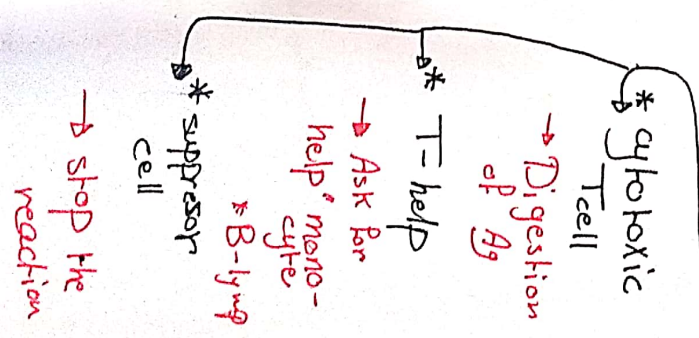 * cytotoxic
T cell
→ Digestion
of Ag
* T-help
→ Ask for
help " mono-
cyte
* B-lymp
* suppresor
cell
→ stop the
reaction